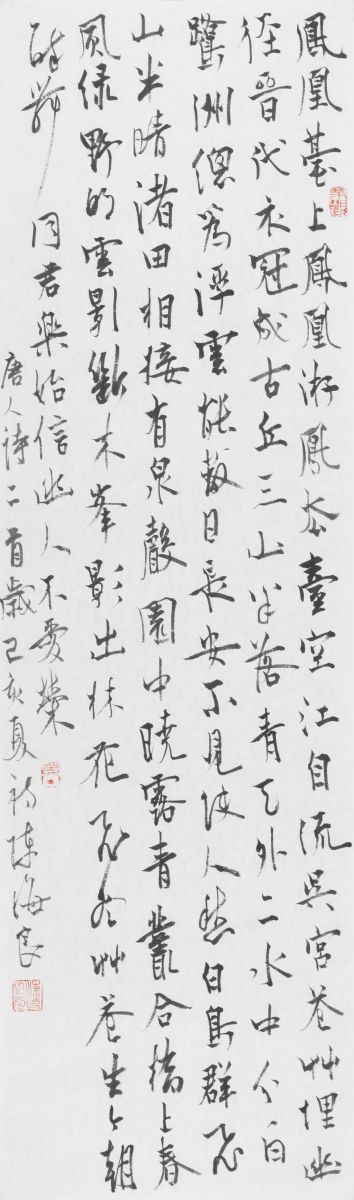 鳳凰臺上鳳凰游鳳去臺空江自流吳宮花艸埋幽
徑晉代衣冠成古丘三山半落青天外二水中分白
鷺洲總爲浮雲能蔽日長安不見使人愁白鳥群飛
山半晴渚田相接有泉聲園中曉露青叢合橋上春
風綠野明雲影斷來峯影出林花飛盡艸生今朝
醉舞同君樂始信幽人不愛榮
唐人詩二首歲己亥夏初陳海良